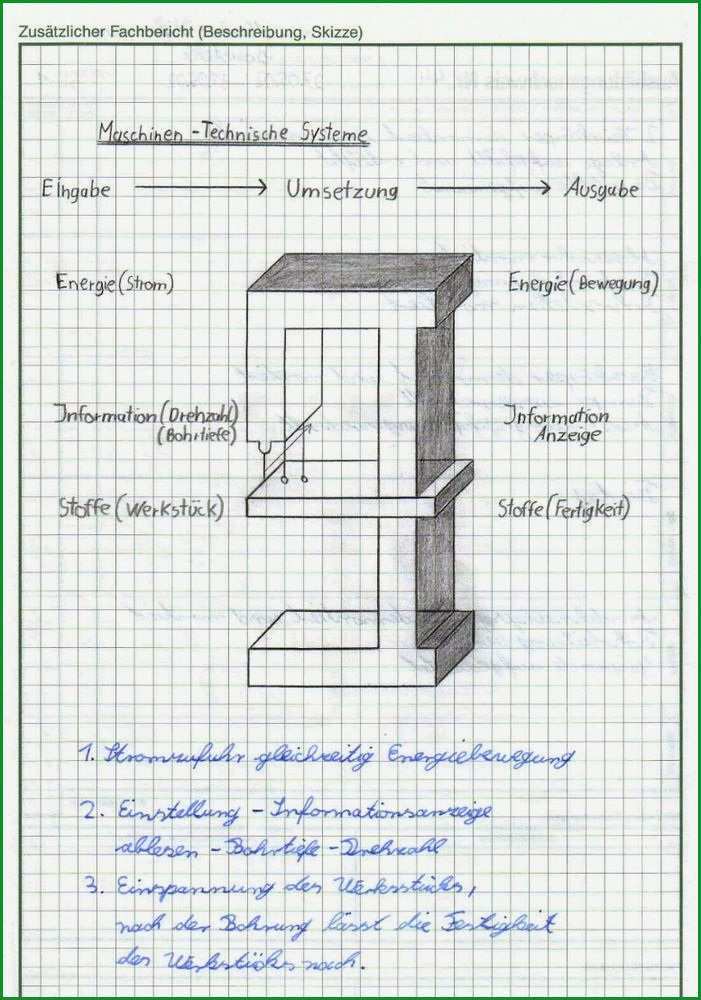 Zusätzlicher Fachbericht (Beschreibung, Skizze)
Maschinen - Technische Systeme
Eingabe → Umsetzung → Ausgabe
Energie (Strom)
Energie (Bewegung)
Information (Drehzahl)
(Bohrtiefe)
Information
Anzeige
Stoffe (Werkstück)
Stoffe (Fertigkeit)
1. Stromzufuhr gleichzeitig Energiebewegung
2. Einstellung - Informationsanzeige
ablesen - Bohrtiefe - Drehzahl
3. Einspannung des Werksstücks,
nach der Bohrung lässt die Festigkeit
des Werkstücks nach.